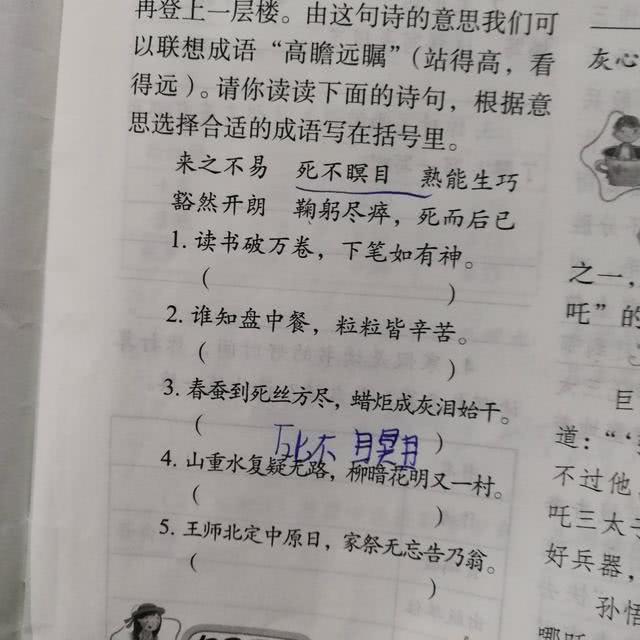 再登上一层楼。由这句诗的意思我们可
以联想成语“高瞻远瞩”(站得高，看
得远)。请你读读下面的诗句，根据意
思选择合适的成语写在括号里。
来之不易 死不瞑目 熟能生巧
豁然开朗 鞠躬尽瘁，死而后已
1. 读书破万卷，下笔如有神。
( )
2. 谁知盘中餐，粒粒皆辛苦。
( )
3. 春蚕到死丝方尽，蜡炬成灰泪始干。
( 死不瞑目 )
4. 山重水复疑无路，柳暗花明又一村。
( )
5. 王师北定中原日，家祭无忘告乃翁。
( )
灰心
之一，
吒”的
巨
道：“‘
不过他
吒三太
好兵器，
孙悟